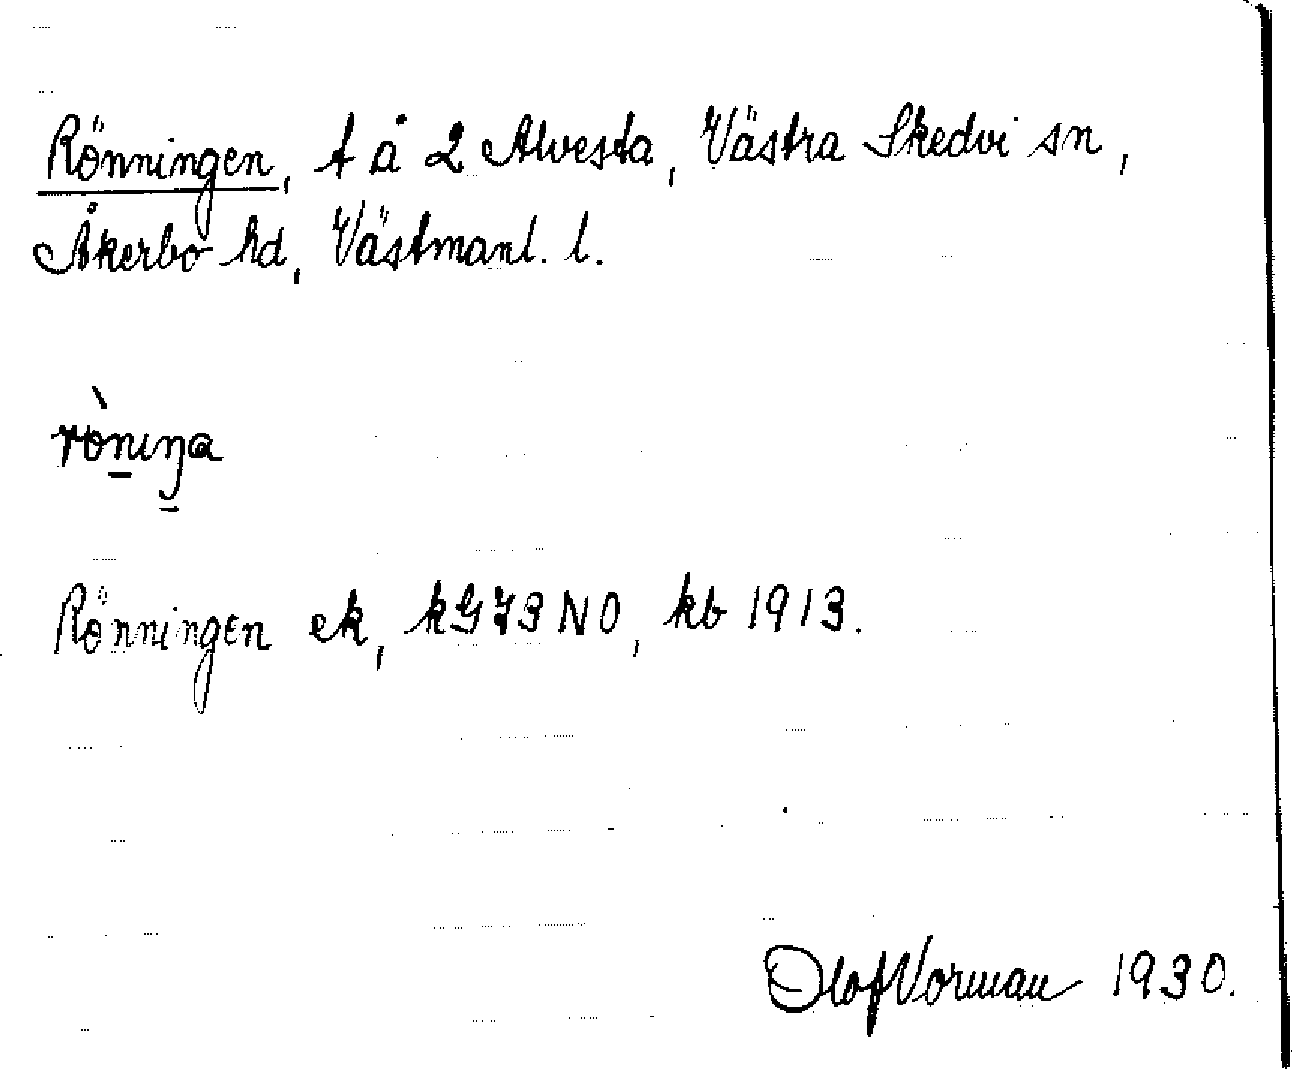 Rönningen, t å 2 Alvesta, Västra Skedvi sn,
Åkerbo hd, Västmanl. l.
rònıŋa
Rönningen ek, kG73NO, kb 1913.
Olof Vorman 1930.